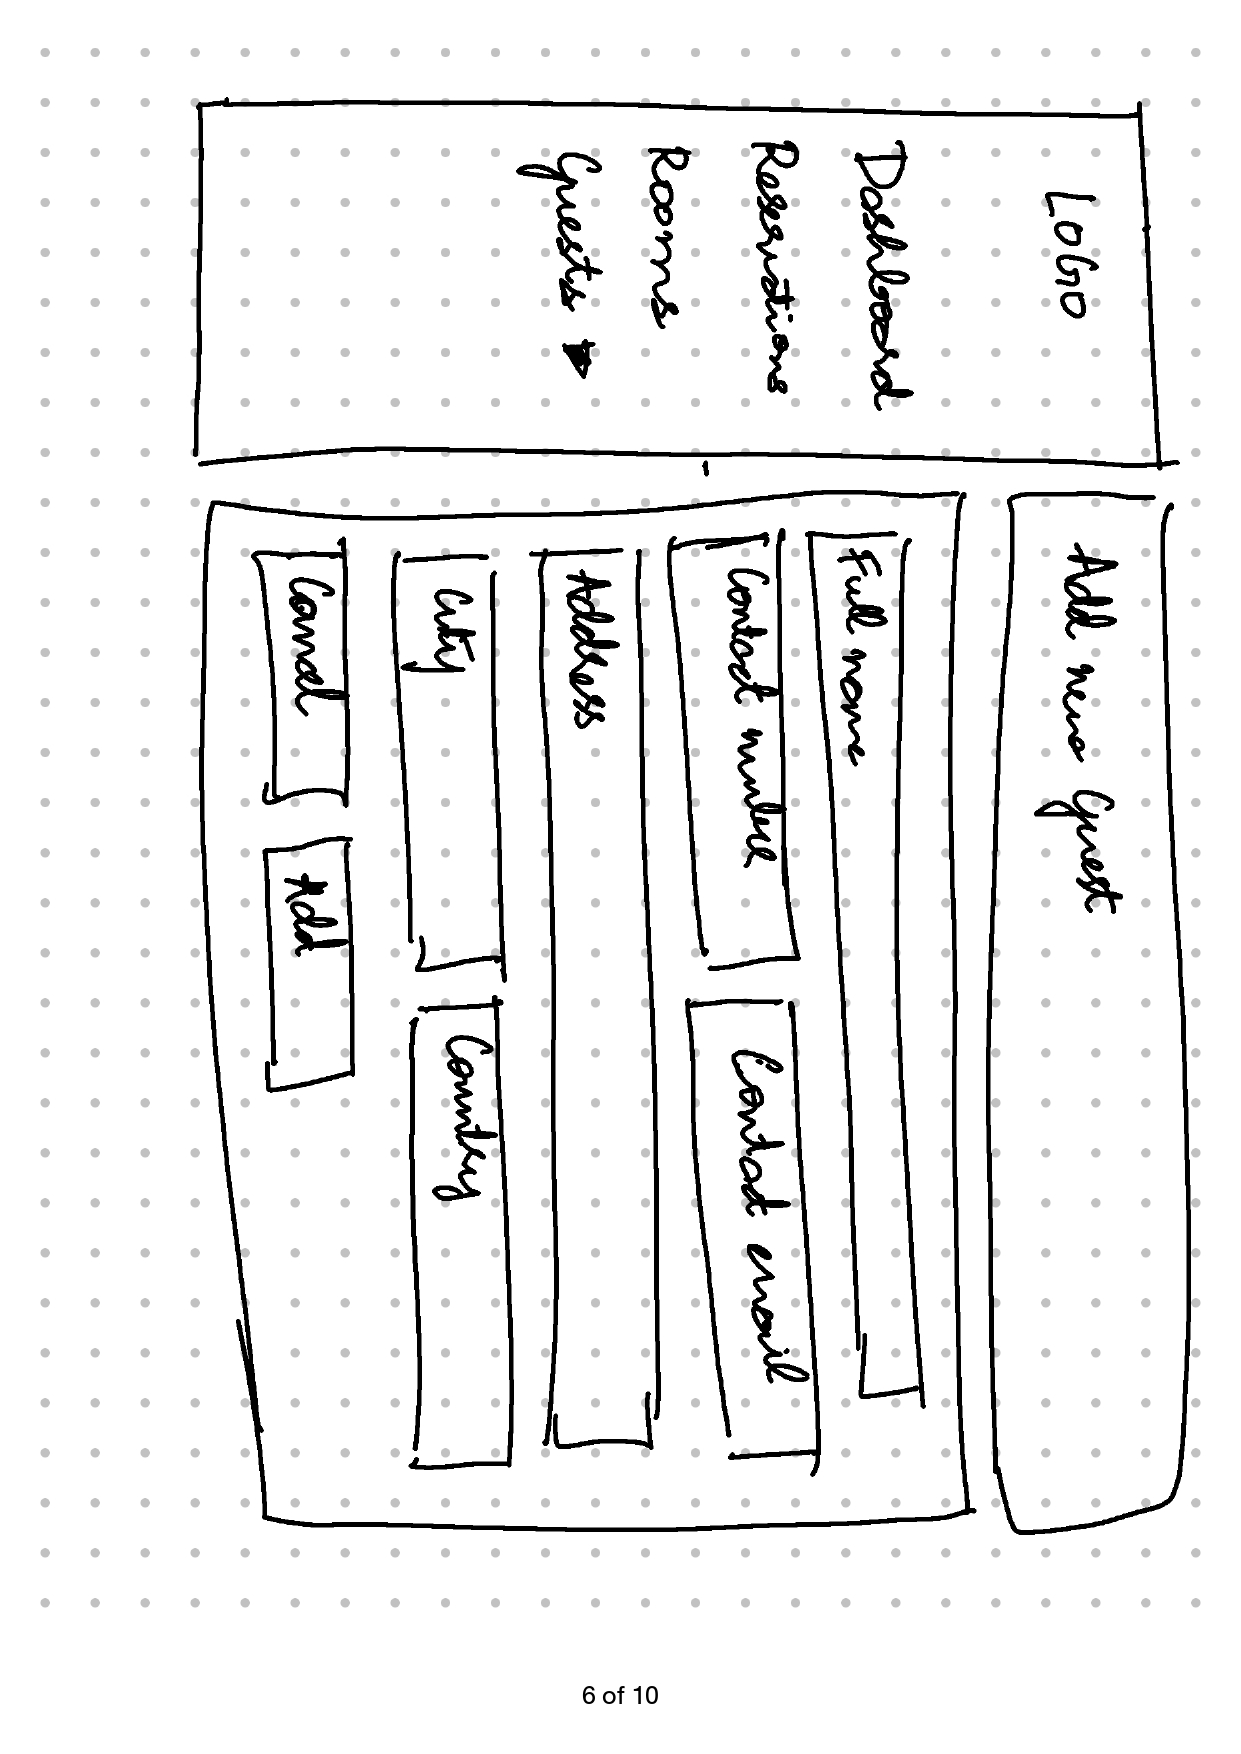 LOGO
Dashboard
Reservations
Rooms
Guests
Add new Guest
Full name
Contact number
Contact email
Address
City
Country
Cancel
Add
6 of 10